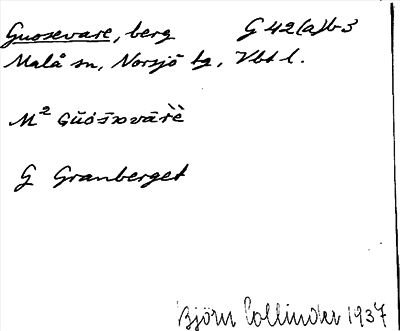 Guosevare, berg G 42(a)b3
Malå sn, Norsjö tg, Vbt l.
M² Gŭósxvārὲ̀
G Granberget
Björn Collinder 1937